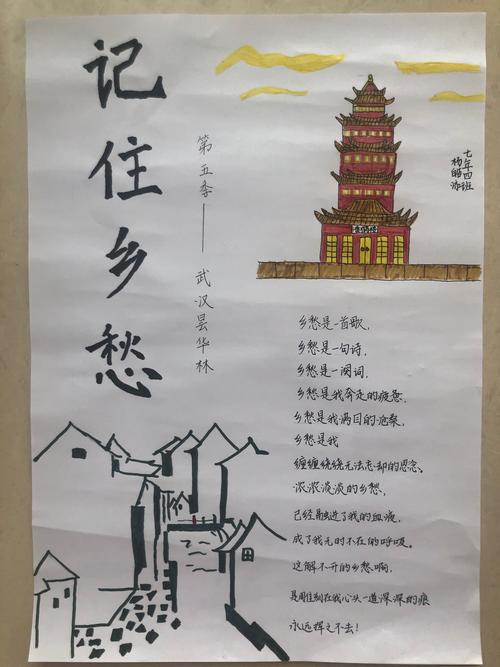 记住乡愁
第五季——武汉昙华林
七年四班
乡愁是一首歌,
乡愁是一句诗,
乡愁是一阕词,
乡愁是我奔走的疲惫,
乡愁是我满目的沧桑,
乡愁是我
缠缠绕绕无法忘却的思念、
浓浓淡淡的乡愁,
已经融进了我的血液,
成了我无时不在的呼吸。
这解不开的乡愁啊,
是雕刻在我心头一道深深的痕
永远挥之不去!